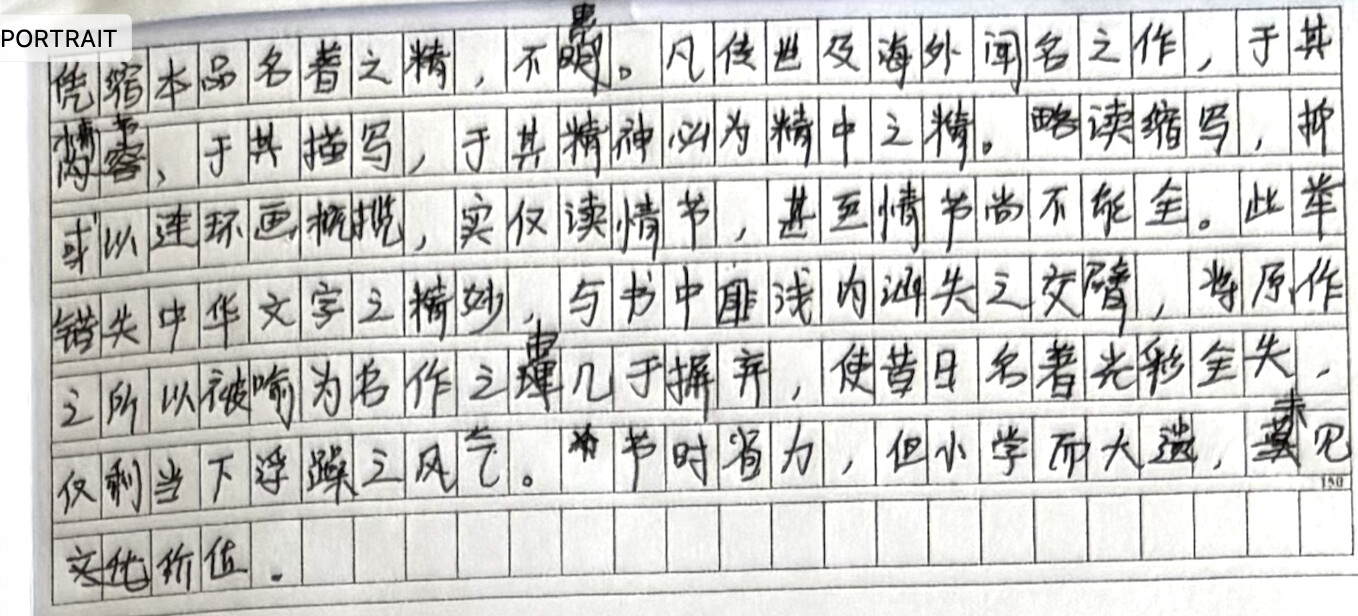 PORTRAIT
凭缩本品名著之精，不思。凡传世及海外闻名之作，于其
情节，于其描写，于其精神必为精中之精。略读缩写，抑
或以连环画概揽，实仅读情节，甚至情节尚不能全。此举
错失中华文字之精妙，与书中匪浅内涵失之交臂，将原作
之所以被喻为名作之由几于摒弃，使昔日名著光彩全失，
仅剩当下浮躁之风气。节时省力，但小学而大遗，未见
价值.
150